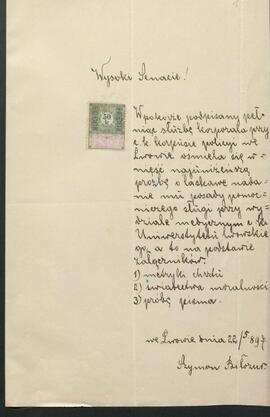 Wysoki Senacie!
50
W pokorze podpisany peł-
niąc służbę korporala przy
c. k. korpusie policyi we
Lwowie ośmiela się w-
nieść najuniżeńszą
prośbę o łaskawe nada-
nie mu posady pomoc-
niczego sługi przy wy-
dziale medycznym c. k.
Uniwersytetu lwowskie
go, a to na podstawie
załączników.
1) metryki chrztu
2) świadectwa moralności
3) próbę pisma.
we Lwowie dnia 22/5 897
Szymon